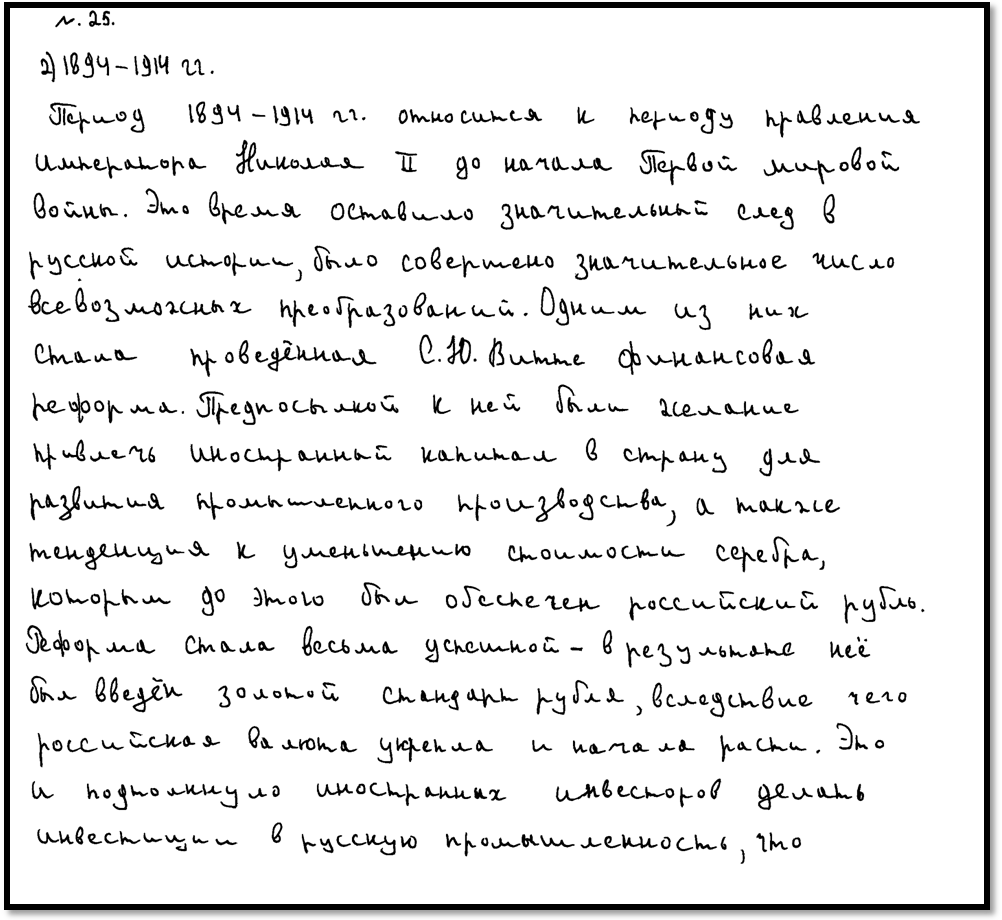 №. 25.
2) 1894 – 1914 гг.
Период 1894 – 1914 гг. относится к периоду правления
императора Николая II до начала Первой мировой
войны. Это время оставило значительный след в
русской истории, было совершено значительное число
всевозможных преобразований. Одним из них
стала проведённая С.Ю. Витте финансовая
реформа. Предпосылкой к ней были желание
привлечь иностранный капитал в страну для
развития промышленного производства, а также
тенденция к уменьшению стоимости серебра,
которым до этого был обеспечен российский рубль.
Реформа стала весьма успешной – в результате неё
был введён золотой стандарт рубля, вследствие чего
российская валюта укрепла и начала расти. Это
и подтолкнуло иностранных инвесторов делать
инвестиции в русскую промышленность, что